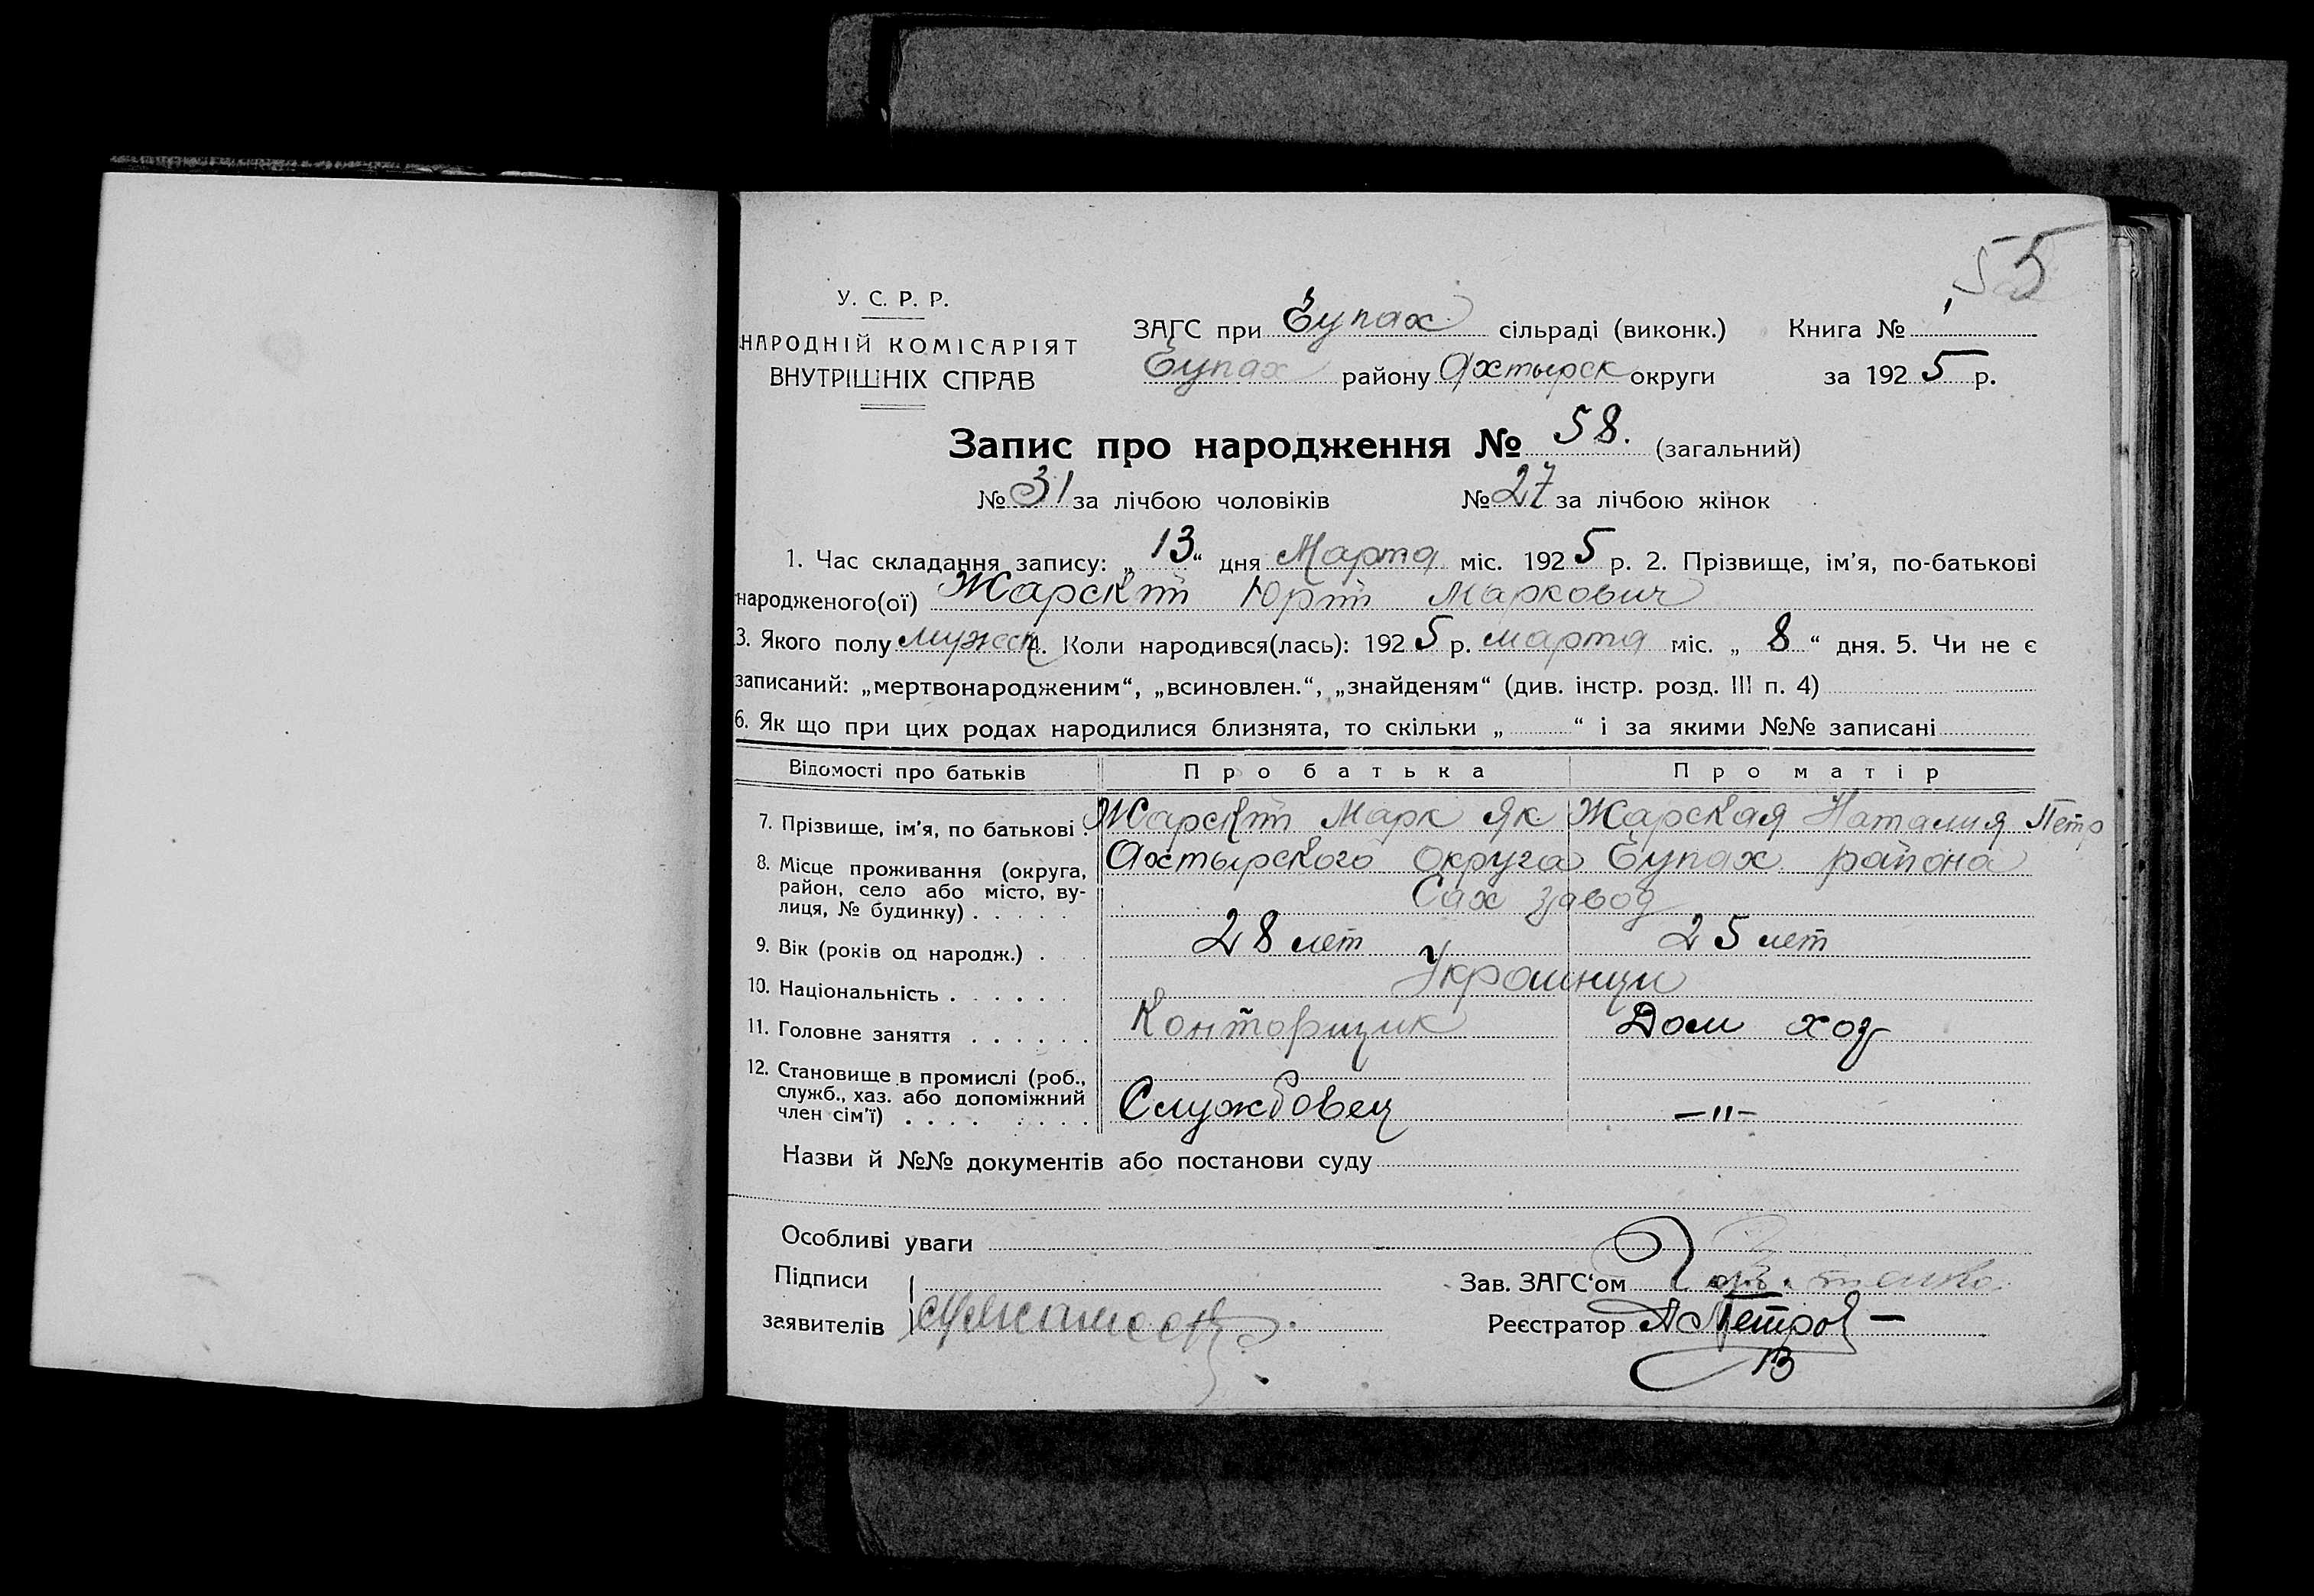 55
У. С. Р. Р.
НАРОДНІЙ КОМІСАРІЯТ
ВНУТРІШНІХ СПРАВ
ЗАГС при Гупах сільраді (виконк.) Книга № 1
Гупах району Ахтырск округи за 1925 р.
Запис про народження № 58. (загальний)
№ 31 за лічбою чоловіків № 27 за лічбою жінок
1. Час складання запису: „13“ дня Марта міс. 1925 р. 2. Прізвище, ім’я, по-батькові
народженого(ої) Жарский Юрий Маркович
3. Якого полу мужск 4. Коли народився(лась): 1925 р. марта міс. „8“ дня. 5. Чи не є
записаний: „мертвонародженим“, „всиновлен.“, „знайденям“ (див. інстр. розд. III п. 4)
6. Як що при цих родах народилися близнята, то скільки „ “ і за якими №№ записані
Відомості про батьків Про батька Про матір
7. Прізвище, ім’я, по батькові . Жарский Марк Як Жарская Наталия Петр
8. Місце проживання (округа, район, село або місто, вулиця, № будинку) . . . . . Ахтырского округа Гупах района
Сах завод
9. Вік (років од народж.) . . . 28 лет 25 лет
10. Національність . . . . . . Украинци
11. Головне заняття . . . . . . Конторщик Дом хоз
12. Становище в промислі (роб., служб., хаз. або допоміжний член сім’ї) . . . . . . . . Службовец —"—
Назви й №№ документів або постанови суду
Особливі уваги
Підписи
заявителів
Зав. ЗАГС‘ом
Реєстратор А Петров